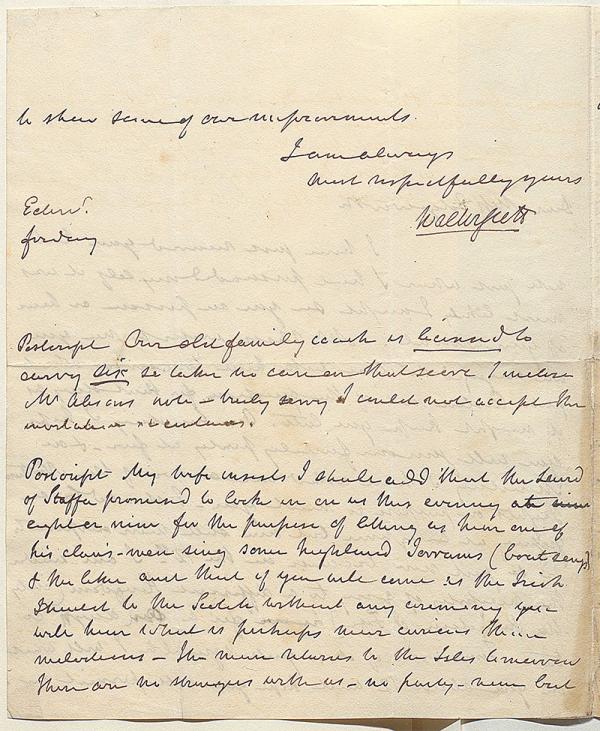 to shew some of our improvements.
I am always
most respectfully yours
Walter Scott
Edinr.
friday
Postscript Our old family coach is licensed to
carry six so take no care on that score I enclose
Mr Alison's note - truly sorry I could not accept the
invitation it contains.
Postscript My wife insists I shall add that the Laird
of Staffa promised to look in on us this evening at
eight or nine for the purpose of letting us hear one of
his clans-men sing some highland Jorrams (boat songs)
& the like and that if you will come as the Irish
should to the Scotch without any ceremony you
will hear what is perhaps more curious than
melodious - The man returns to the Isles tomorrow
There are no strangers with us - no party - none but